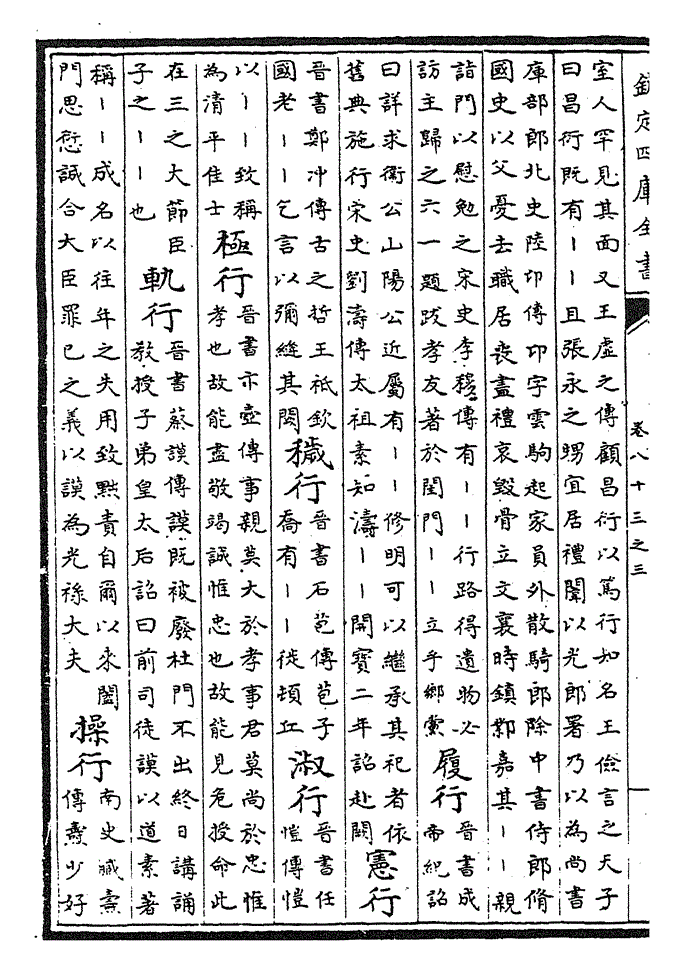 欽定四庫全書
卷八十三之三
室人罕見其面又王虛之傳顧昌衍以篤行知名王儉言之天子
曰昌衍既有丨丨且張永之甥宜居禮闈以光郎署乃以為尚書
庫部郎北史陸卬傳卬字雲駒起家員外散騎郎除中書侍郎脩
國史以父憂去職居喪盡禮哀毀骨立文襄時鎮鄴嘉其丨丨親
詣門以慰勉之宋史李穆傳有丨丨行路得遺物必
訪主歸之六一題跋孝友著於閨門丨丨立乎鄉黨
履行
晉書成
帝紀詔
曰詳求衛公山陽公近屬有丨丨修明可以繼承其祀者依
舊典施行宋史劉濤傳太祖素知濤丨丨開寶二年詔赴闕
憲行
晉書鄭冲傳古之哲王祗欽
國老丨丨乞言以彌縫其闕
穢行
晉書石苞傳苞子
喬有丨丨徙頓丘
淑行
晉書任
愷傳愷
以丨丨致稱
為清平佳士
極行
晉書卞壼傳事親莫大於孝事君莫尚於忠惟
孝也故能盡敬竭誠惟忠也故能見危授命此
在三之大節臣
子之丨丨也
軌行
晉書蔡謨傳謨既被廢杜門不出終日講誦
教授子弟皇太后詔曰前司徒謨以道素著
稱丨丨成名以往年之失用致黜責自爾以來闔
門思愆誠合大臣罪己之義以謨為光祿大夫
操行
南史臧燾
傳燾少好